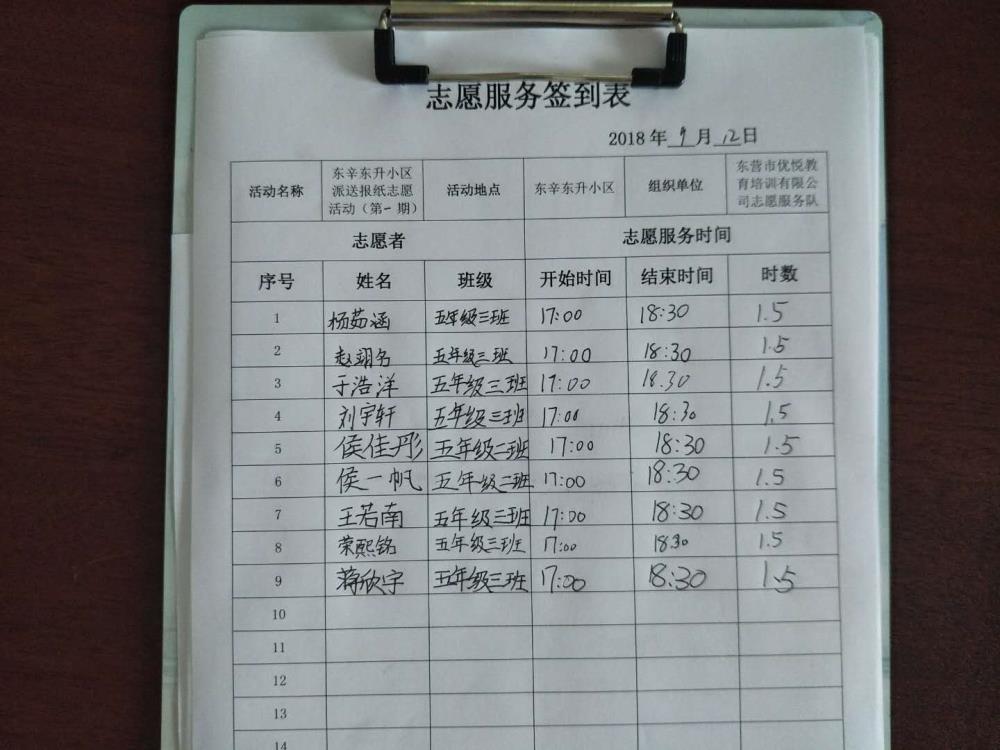 志愿服务签到表
2018年9月12日
活动名称 东辛东升小区派送报纸志愿活动（第一期） 活动地点 东辛东升小区 组织单位 东营市优悦教育培训有限公司志愿服务队
志愿者 志愿服务时间
序号 姓名 班级 开始时间 结束时间 时数
1 杨茹涵 五年级三班 17:00 18:30 1.5
2 赵翊名 五年级三班 17:00 18:30 1.5
3 于浩洋 五年级三班 17:00 18:30 1.5
4 刘宇轩 五年级三班 17:00 18:30 1.5
5 侯佳彤 五年级二班 17:00 18:30 1.5
6 侯一帆 五年级二班 17:00 18:30 1.5
7 王若南 五年级三班 17:00 18:30 1.5
8 荣熙铭 五年级三班 17:00 18:30 1.5
9 蒋欣宇 五年级三班 17:00 18:30 1.5
10
11
12
13
14